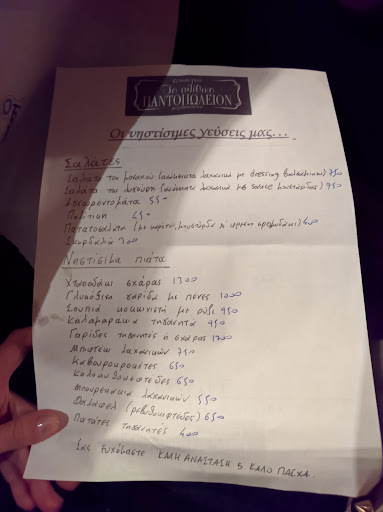 Το πέτρινο
ΠΑΝΤΟΠΩΛΕΙΟΝ
Οι νηστίσιμες γεύσεις μας...
ΣΑΛΑΤΕΣ
Σαλάτα του μοναχού (ανάμεικτα λαχανικά με dressing βαλσάμικου) 750
Σαλάτα του (ανάμεικτα λαχανικά με sauce μουστάρδας) 750
550
Πολίτικη 450
Πατατοσαλάτα (με καρότο, μουστάρδα κ' κρεμμυδάκι) 600
Σκορδαλιά 300
Νηστίσιμα πιάτα
Χταπόδάκι σχάρας 1300
Γλυκόξινη γαρίδα με πένες 1000
Σουπιά κοκκινιστή με ρύζι 950
Καλαμαράκια τηγανητά 950
Γαρίδες τηγανητές ή σχάρας 1200
Μπιφτέκι λαχανικών 750
Καβουροκροκέτες 650
Κολοκυθοκεφτέδες 650
Μπουρεκάκια λαχανικών 550
Φαλάφελ (ρεβυθοκεφτέδες) 650
Πατάτες τηγανητές 400
Σας ευχόμαστε ΚΑΛΗ ΑΝΑΣΤΑΣΗ & ΚΑΛΟ ΠΑΣΧΑ.